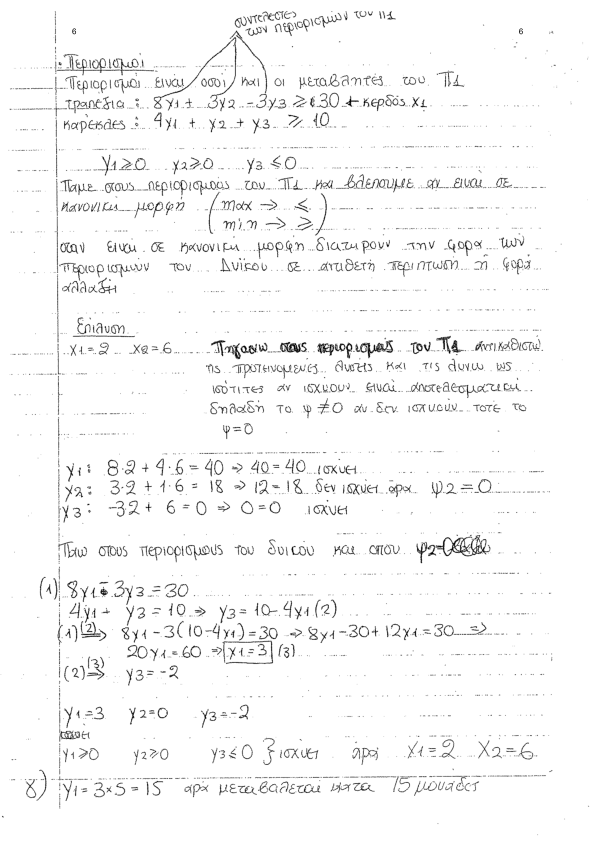 συντελεστες
των περιορισμών του Π1
6 6
• Περιορισμοί
Περιορισμοί ειναι οσοι και οι μεταβλητές του Π1
τραπέζια: 8y1 + 3y2 - 3y3 ≥ 30 + κερδος x1
καρεκλες: 4y1 + y2 + y3 ≥ 10
y1≥0 y2≥0 y3≤0
Παμε στους περιορισμους του Π1 και βλεπουμε αν ειναι σε
κανονικη μορφή (max → ≤
min → ≥)
οταν ειναι σε κανονικη μορφη διατηρουν την φορα των
περιορισμων του Δυϊκου σε αντιθετη περιπτωση η φορά
αλλαζει
Επιλυση
x1=2 x2=6 Πηγαινω στους περιορισμους του Π1 αντικαθιστω
τις προτεινομενες λυσεις και τις λυνω ως
ισότητες αν ισχυουν ειναι αποτελεσματικοι
δηλαδή το ψ≠0 αν δεν ισχυουν τοτε το
ψ=0
y1: 8·2 + 4·6 = 40 ⇒ 40=40 ισχυει
y2: 3·2 + 1·6 = 18 ⇒ 12=18 δεν ισχυει άρα ψ2=0
y3: -3·2 + 6 = 0 ⇒ 0=0 ισχυει
Παω στους περιορισμους του δυικου και οπου ψ2=0
(1) 8y1 - 3y3 = 30
4y1 + y3 = 10 ⇒ y3 = 10-4y1 (2)
(1) (2)⇒ 8y1 - 3(10-4y1) = 30 ⇒ 8y1 - 30 + 12y1 = 30 ⇒
20y1 = 60 ⇒ y1=3 (3)
(2) (3)⇒ y3 = -2
y1=3 y2=0 y3=-2
y1≥0 y2≥0 y3≤0 } ισχυει αρα x1=2 x2=6
γ) y1 = 3×5 = 15 αρα μεταβαλεται κατα 15 μοναδες